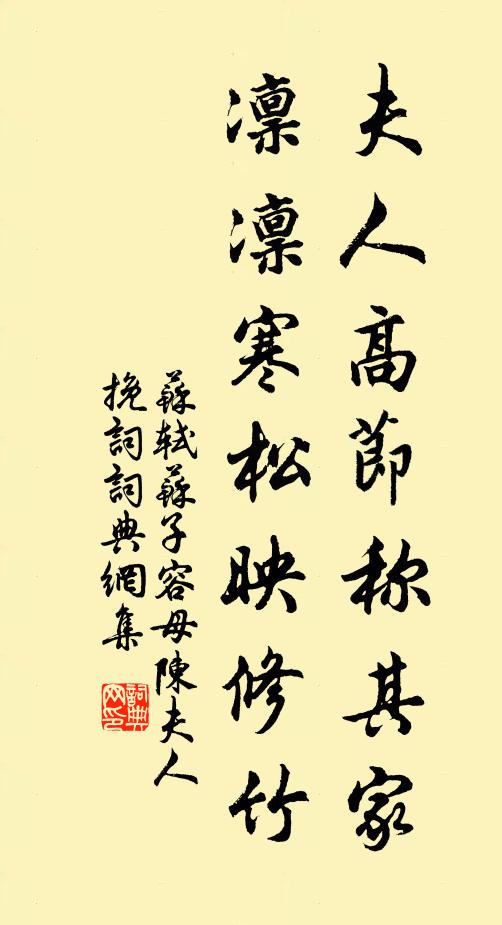 夫人高節称其家
凛凛寒松映修竹
蘇軾蘇子容母陳夫人
挽詞詞典網集
詞典
网印